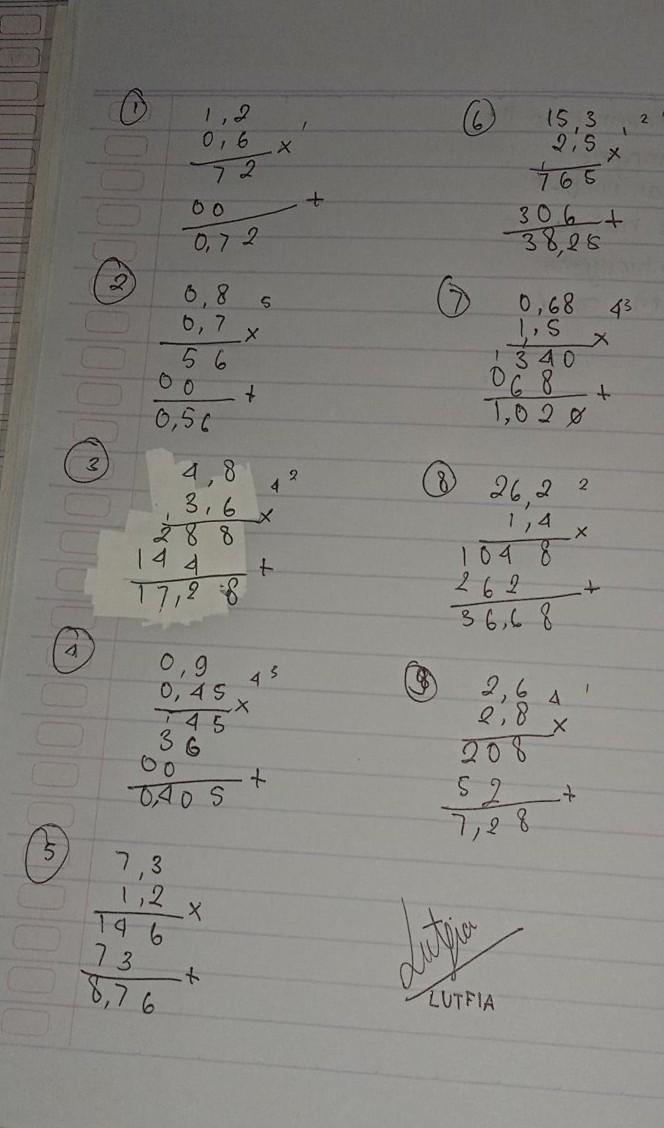 ① 1,2
0,6 x 1
72
00 +
0,72
② 0,8 5
0,7 x
56
00 +
0,56
③ 4,8 4 2
3,6 x
288
144 +
17,28
④ 0,9
0,45 x 4 3
145
36
00 +
0,405
⑤ 7,3
1,2 x
146
73 +
8,76
⑥ 15,3 1 2
2,5 x
765
306 +
38,25
⑦ 0,68 43
1,5 x
1340
068 +
1,020
⑧ 26,2 2
1,4 x
1048
262 +
36,68
⑨ 2,6 4 1
2,8 x
208
52 +
7,28
Lutfia
LUTFIA